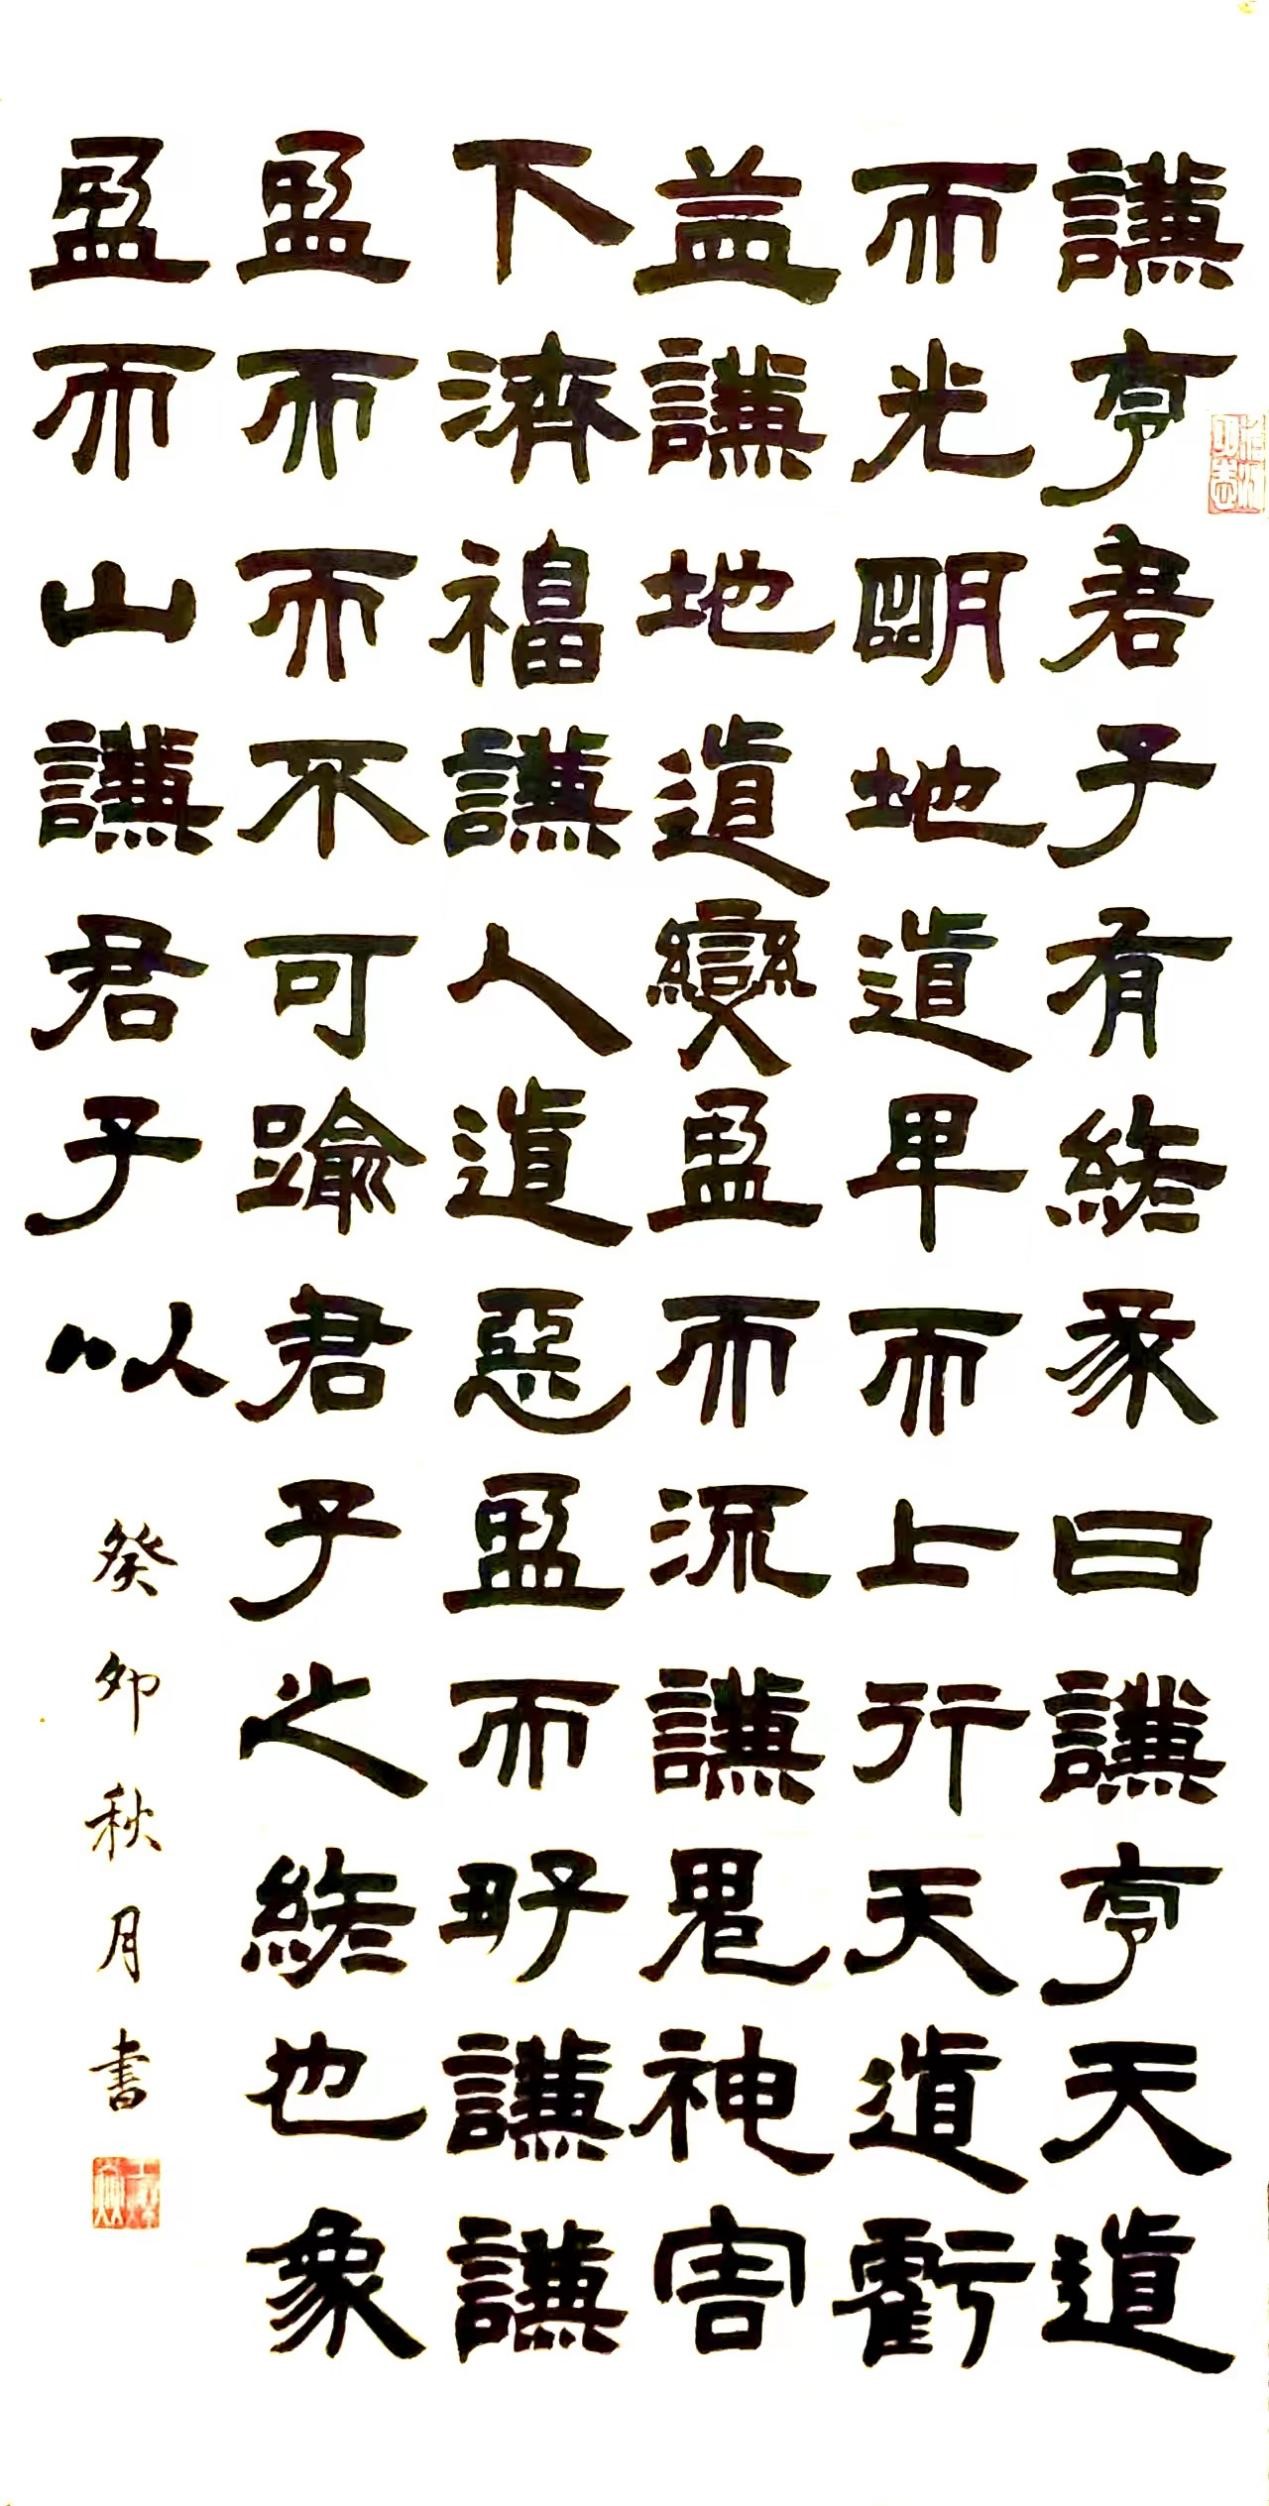 謙亨君子有終彖曰謙亨天道
而光明地道卑而上行天道虧
益謙地道變盈而流謙鬼神害
下濟福謙人道惡盈而好謙謙
盈而而不可踰君子之終也象
盈而山謙君子以
癸卯秋月書